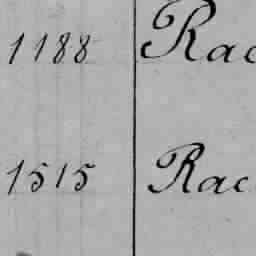 1188 Rac
1515 Rac